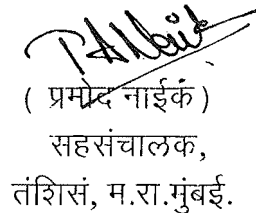 ( प्रमोद नाईक )
सहसंचालक,
तंशिसं, म.रा.मुंबई.